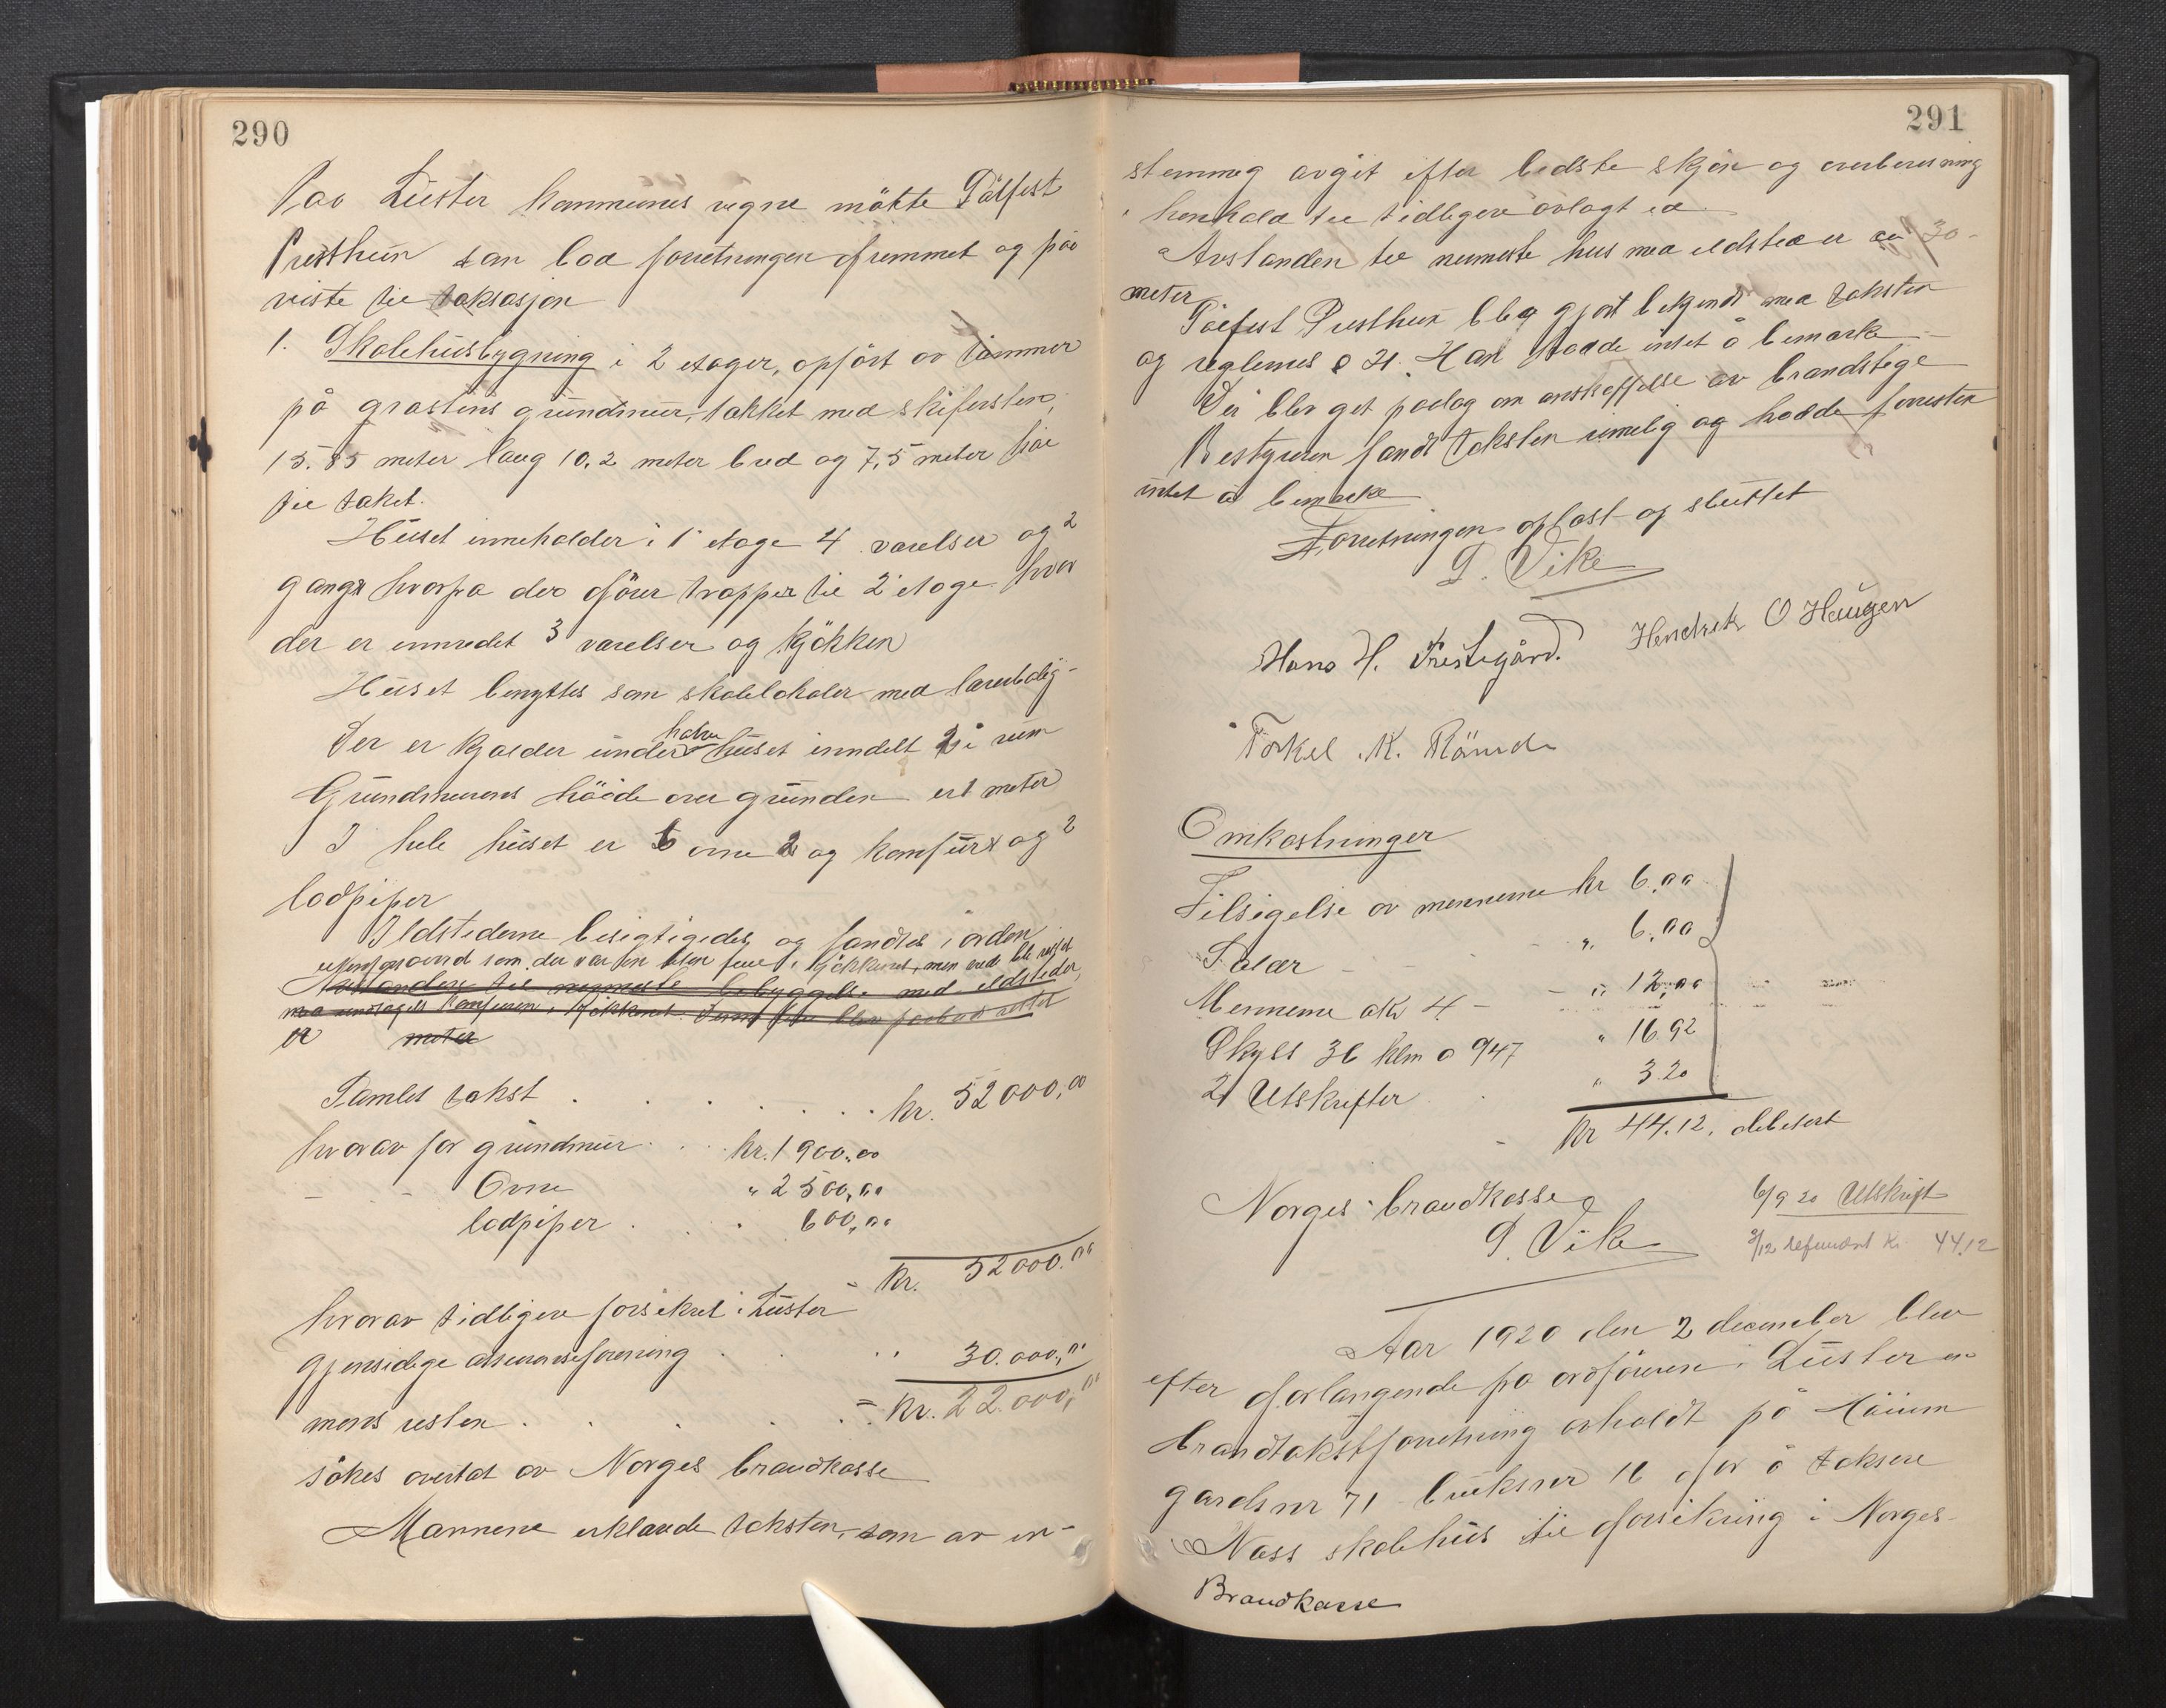 290
Paa Luster kommunes vegne mötte Pålfest
Presthun som bad forretningen fremmet og paa
viste til taksasjon
1. Skolehusbygning i 2 etager, opfört av tömmer
på grastens grundmur, takket med skifersten,
15.85 meter lang 10,2 meter bred og 7,5 meter høi
til taket.
Huset inneholder i 1 etage 4 varelser og 2
gange hvorfra der förer trapper til 2 etage hvor
der er innredet 3 varelser og kjökken
Huset benyttes som skolelokaler med lærerbolig-
Der er kjælder under halve huset inndelt i 2 rum
Grundmurens höide over grunden er 1 meter
I hele huset er 6 ovne og 2 komfur og 2
lodpiper
Ildstederne besigtigedes og fandtes i orden
Avstanden til nærmeste bebyggelse med ildsteder
er meter
Samlet takst . . . . . . . kr. 52000,00
hvorav for grundmur . . . kr. 1900,00
- - Ovne " 2500,00
lodpiper . . . 600,00
Kr. 52000.00
hvorav tidligere forsikret i Luster
gjensidige assuranseforening . . . 30.000,00
mens resten . . . . . = Kr. 22.000,00
sökes overtat av Norges brandkasse
Mannene erklærede taksten, som av en-
291
stemmig avgit efter bedste skjön og overbevisning
i henhold til tidligere avlagt ed.
Avstanden til nermeste hus med ildsted er ca 30-
meter
Pålfest Presthun blev gjort bekjendt med taksten
og reglernes § 21. Han hadde intet å bemærke -
Der blev get paalag om anskaffelse av brandstige
Bestyreren fandt taksten rimelig og hadde forresten
intet å bemerke
Forretningen oplæst og sluttet
P. Vike
Hans H. Prestegård. Hendrik O Haugen
Torkel K. Röneid
Omkostninger
Tilsigelse av mennerne kr 6,00
Salær - - - " 6,00
Mennerne a kr 4 - - " 12,00
Skyss 36 klm a 0 47 " 16.92
2 Utskrifter " 3.20
Kr 44.12. debetert
Norges brandkasse
P. Vike
6/9 20 Utskrift
3/12 refundert Kr. 44.12
Aar 1920 den 2 december blev
efter forlangende fra ordföreren i Luster en
brandtakstforretning avholdt på Höium
gardsnr 71 bruksnr 16 for å taksere
Næss skolehus til forsikring i Norges
Brandkasse